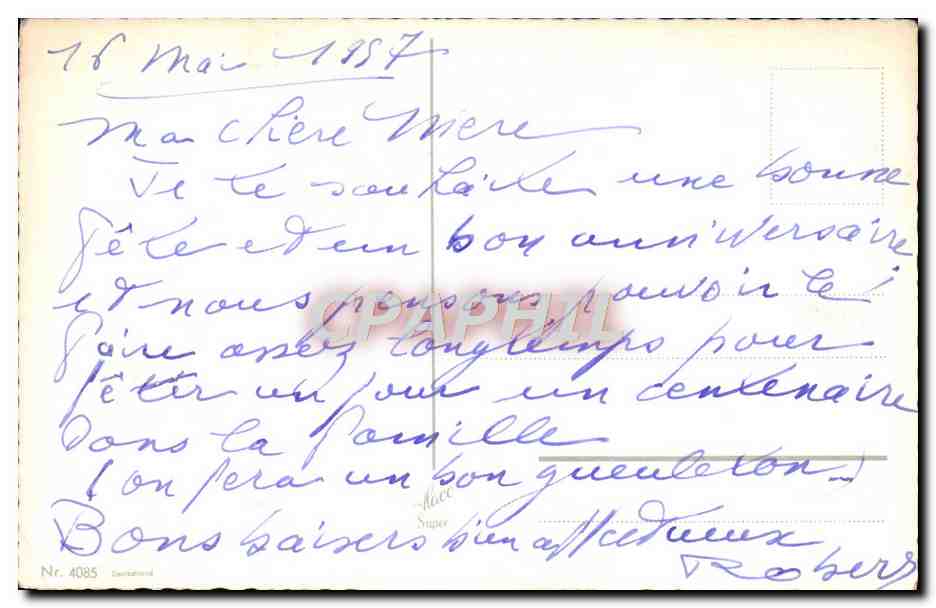 16 Mai 1957
Ma chère Mère
Je te souhaite une bonne
fête et un bon anniversaire
et nous pensons pouvoir le
faire assez longtemps pour
fêter un jour un centenaire
dans la famille
(on fera un bon gueuleton)
Bons baisers bien affectueux
Robert
CPAPHIL
Super
Nr. 4085